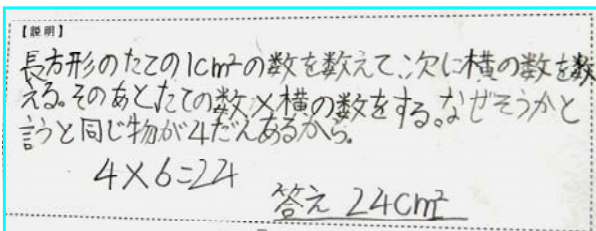 【説明】
長方形のたての1cm²の数を数えて、次に横の数を数
える。そのあとたての数×横の数をする。なぜそうかと
言うと同じ物が4だんあるから。
4×6=24
答え 24cm²